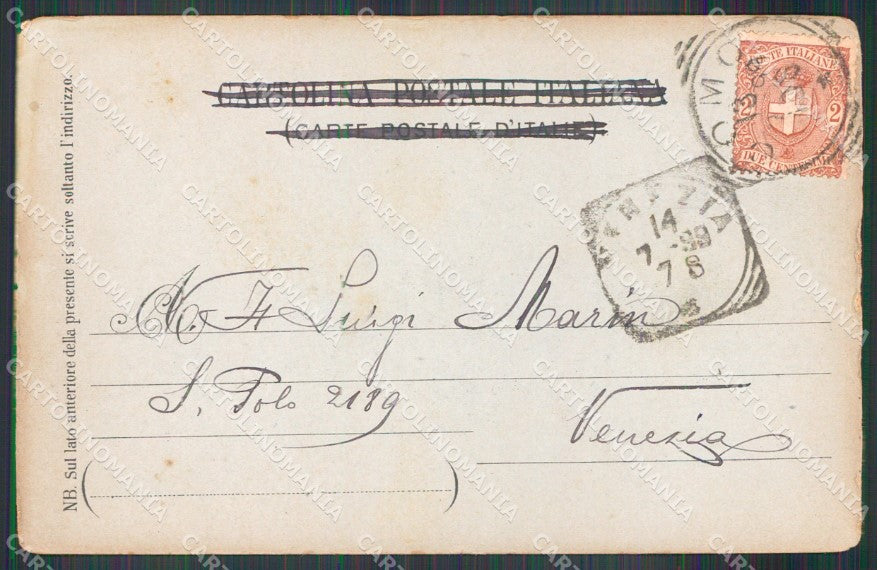 CARTOLINA POSTALE ITALIANA
(CARTE POSTALE D'ITALIE)
POSTE ITALIANE
2
DUE CENTESIMI
COMO
VENEZIA
14
7-99
7 S
N. H. Luigi Marin
S. Polo 2189
Venezia
NB. Sul lato anteriore della presente si scrive soltanto l'indirizzo.
CARTOLINOMANIA